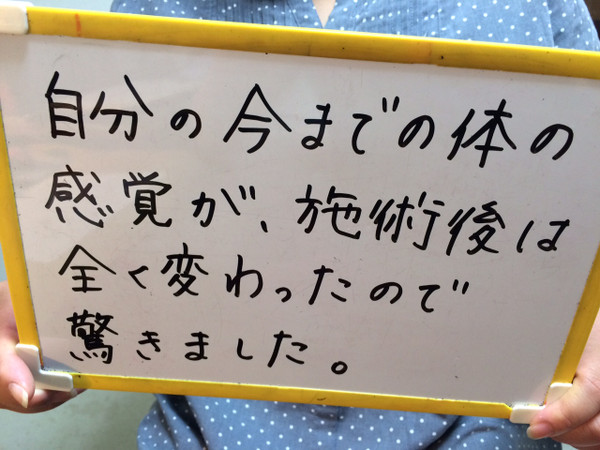 自分の今までの体の
感覚が、施術後は
全く変わったので
驚きました。